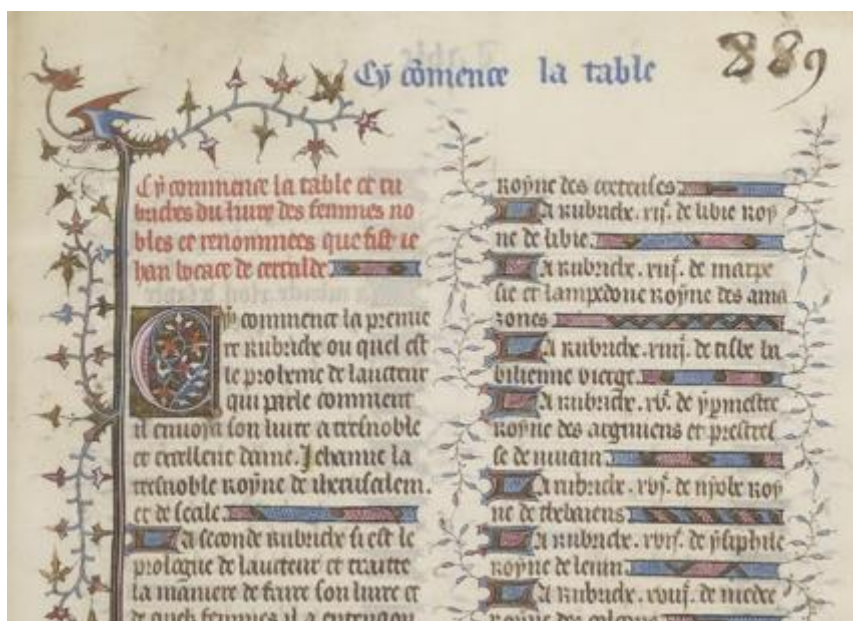 Cy cõmence la table
889
Cy commence la table et ru
briches du livre des femmes no
bles et renommees que fist ie
han bocace de certalde
Cy commence la premie
re rubriche ou quel est
le proheme de laucteur
qui parle comment
il envoya son livre a tresnoble
et excellent dame. Jehanne la
tresnoble royne de iherusalem.
et de secile.
La seconde rubriche si est le
prologue de laucteur et traitte
la maniere de faire son livre et
de quels femmes il a entencion
royne des cretenses
La rubriche. xij.e de libie roy
ne de libie.
La rubriche. xiij. de marpe
sie et lampedone royne des ama
zones
La rubriche. xiiij. de tisbe ba
bilienne vierge.
La rubriche. xv.e de ypmestre
royne des argiuens et prestres
se de
La rubriche. xvj. de nyobe roy
ne de thebaiens
La rubriche. xvij. de ysiphile
royne de lenin
La rubriche. xviij. de medee
royne des colcous